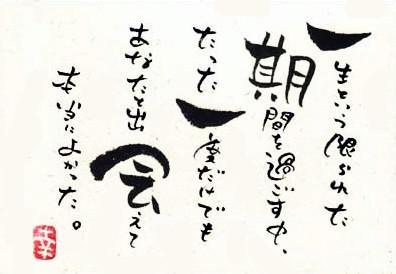 一生という限られた
期間を過ごす中、
たった一度だけでも
あなたと出会えて
本当によかった。
幸